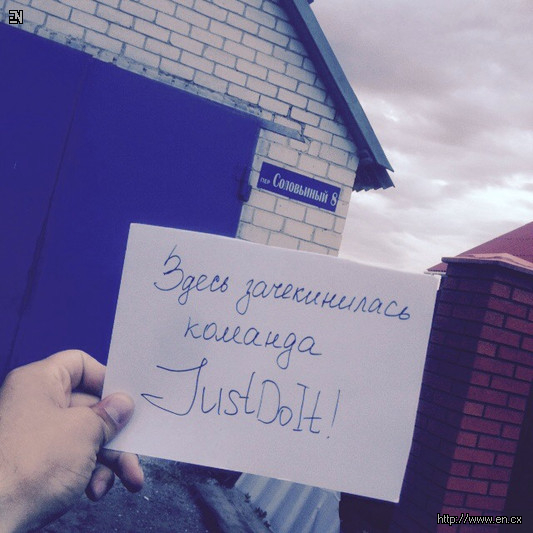 EN
пер Соловьиный 8
Здесь зачекинилась
команда
JustDoIt!
http://www.en.cx